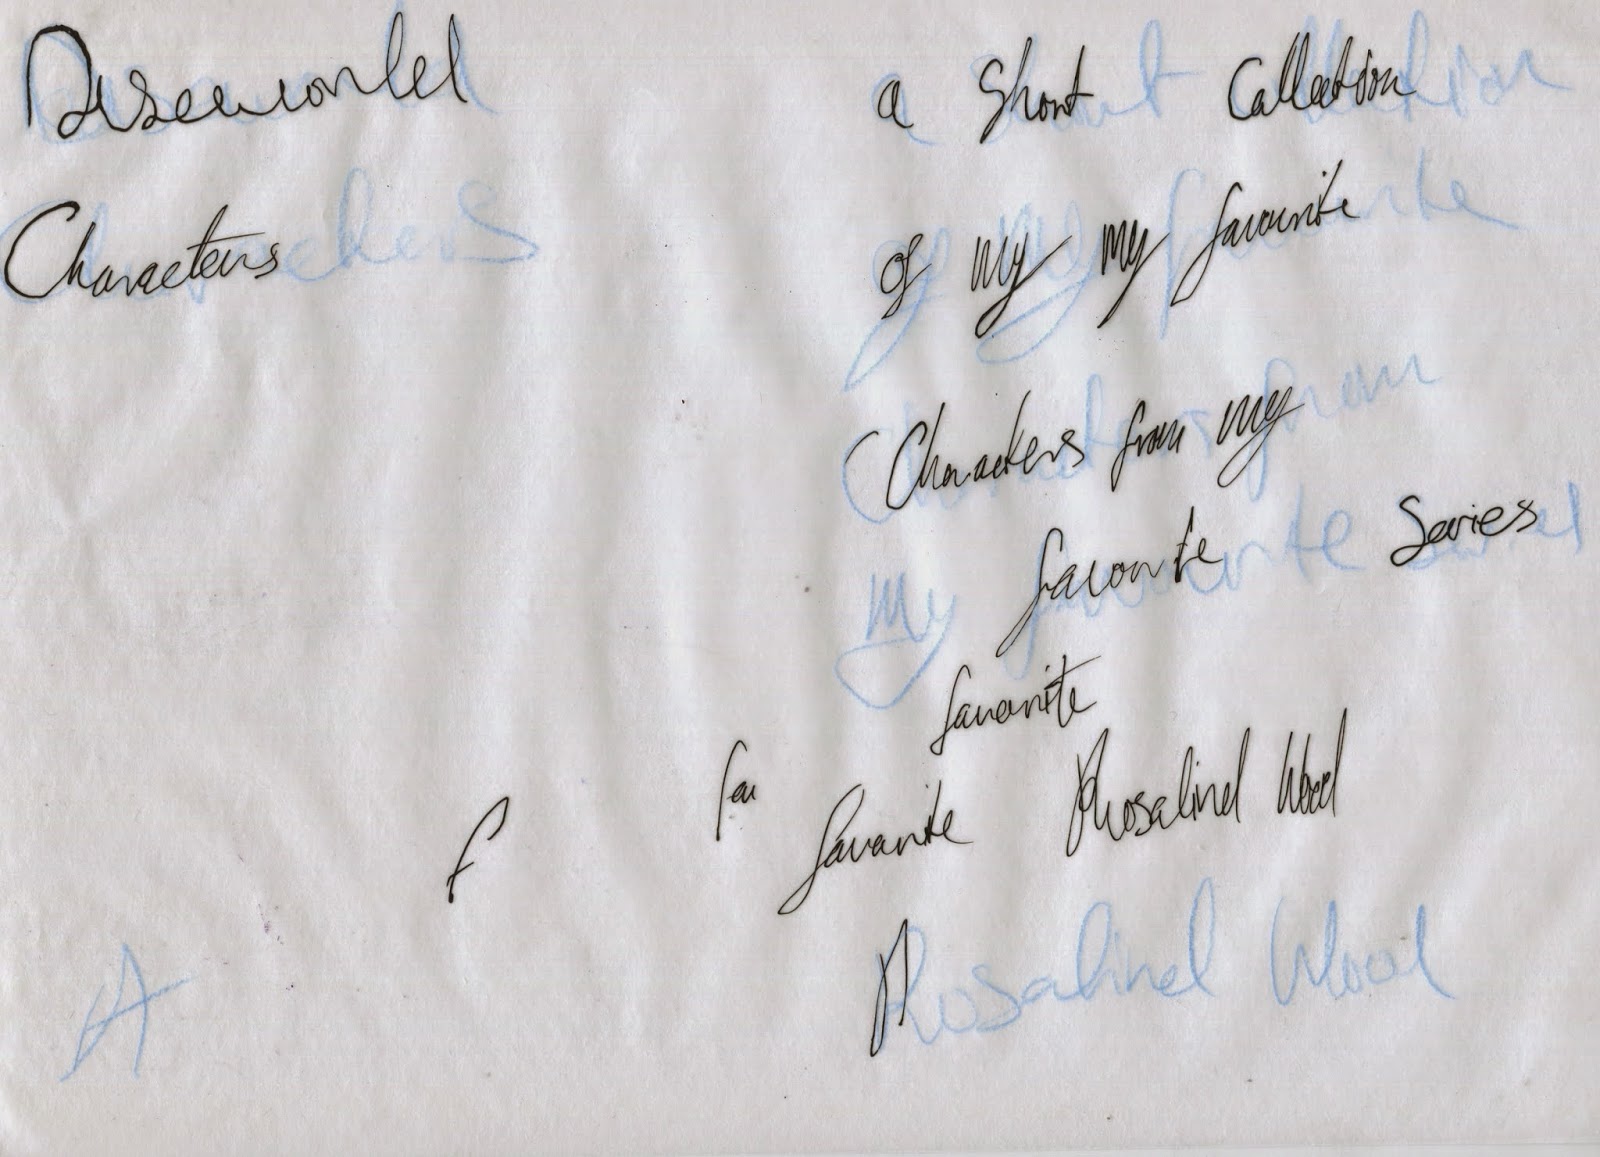 Discworld
Characters
a Short Collection
of My My favourite
Characters from My
My favourite Series
favourite
f fav favourite Rosalind Wood
A R Rosalind Wood